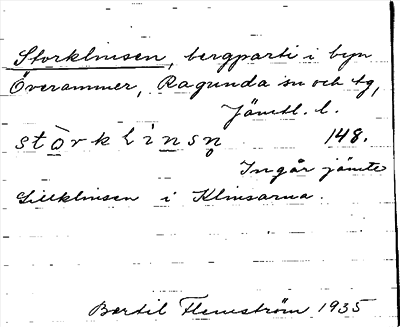 Storklinsen, bergparti i byn
Överammer, Ragunda sn och tg,
Jämtl. l.
stòrklìnsn̥ 148.
Ingår jämte
Lillklinsen i Klinsarna.
Bertil Flemström 1935